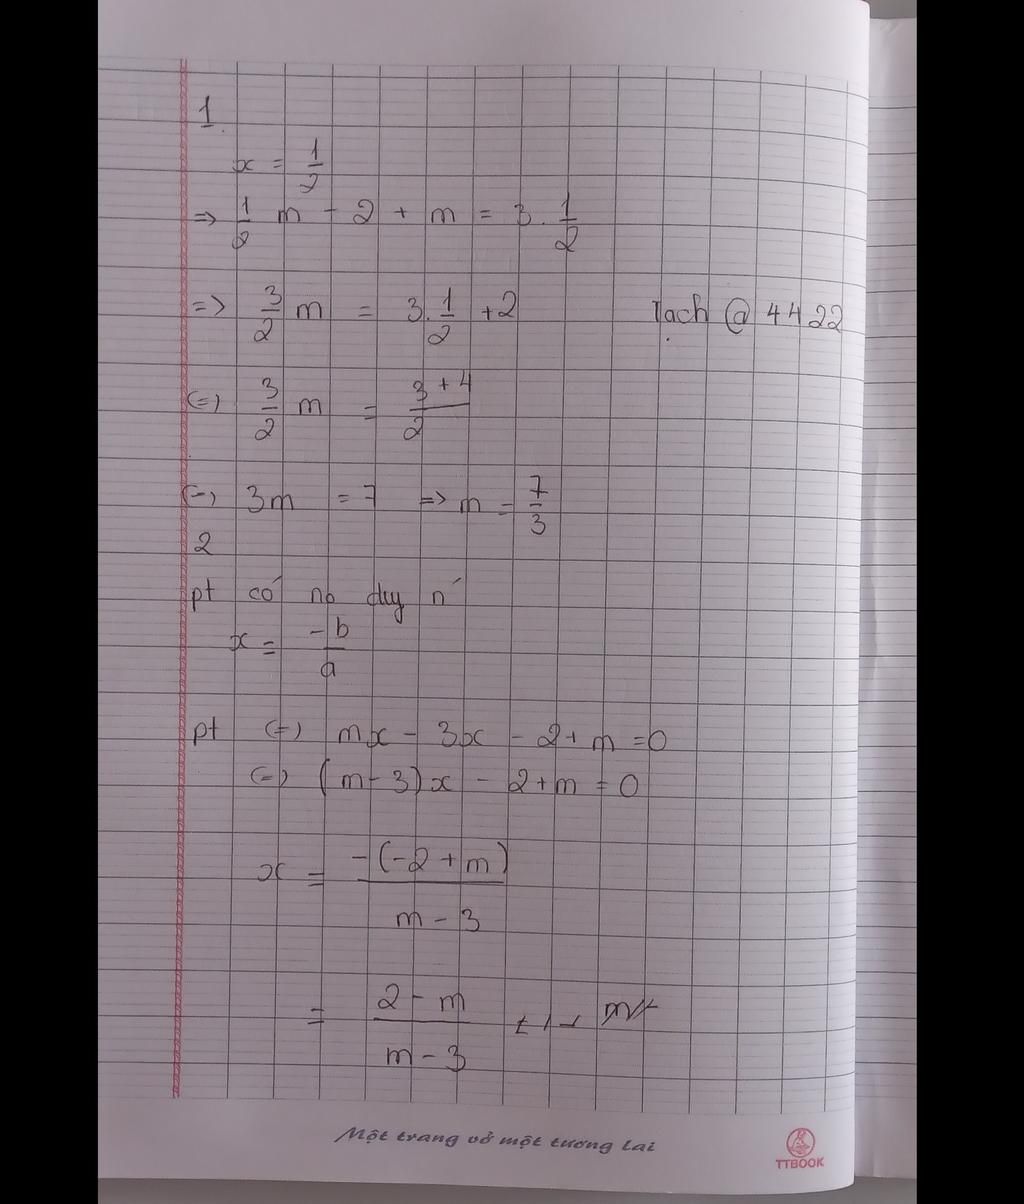 1.
x = 1/2
=> 1/2 m - 2 + m = 3 . 1/2
=> 3/2 m = 3. 1/2 + 2
lạch @ 4422
(=) 3/2 m = 3 + 4 / 2
(=) 3m = 7 => m = 7/3
2
pt có no duy n'
x = -b/a
pt (=) mx - 3x - 2 + m = 0
(=) (m - 3)x - 2 + m = 0
x = -(-2 + m) / m - 3
= 2 - m / m - 3
Một trang vở một tương lai
TTBOOK